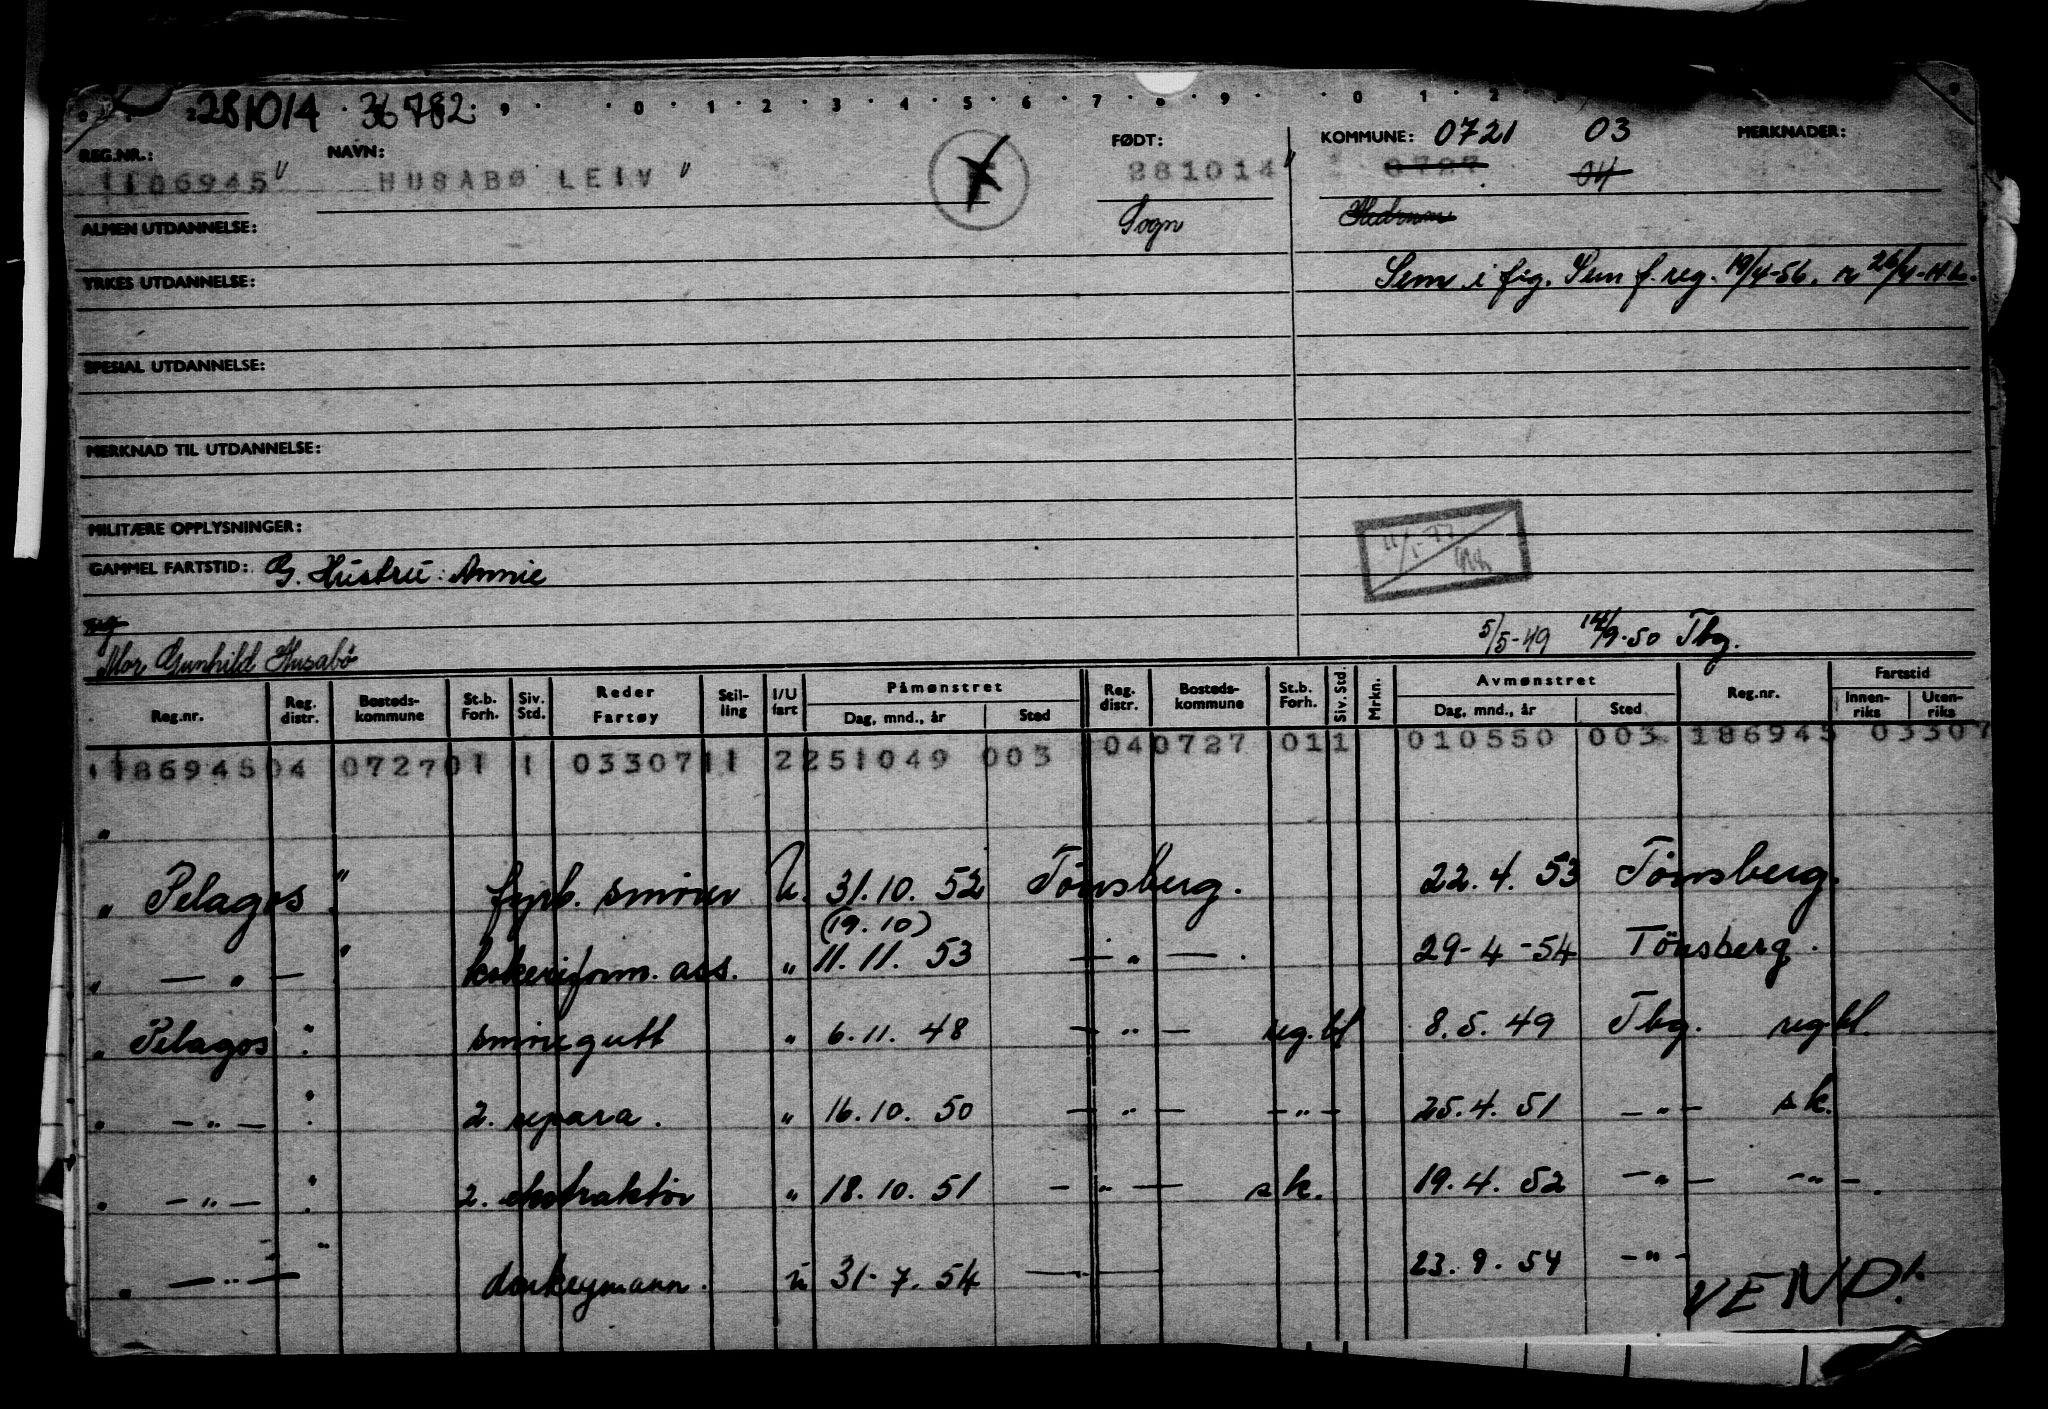 281014 36782
REG.NR.: NAVN: FØDT: KOMMUNE: 0721 03 MERKNADER:
186945 " HUSABØ LEIV " 281014 " 0727 04
ALMEN UTDANNELSE: Sogn Hedrum
YRKES UTDANNELSE: Sem i flg. Sem f. reg. 19/4-56.
SPESIAL UTDANNELSE:
MERKNAD TIL UTDANNELSE:
MILITÆRE OPPLYSNINGER:
GAMMEL FARTSTID: G. Hustru: Annie
5/5-49 14/9-50 Tbg.
Mor Gunhild Husabø
Reg.nr. Reg. distr. Bosteds- kommune St.b. Forh. Siv. Std. Reder Fartøy Stil- ling I/U fart Påmønstret Dag, mnd., år Sted Reg. distr. Bosteds- kommune St.b. Forh. Siv. Std. Mrkn. Avmønstret Dag, mnd., år Sted Reg.nr. Fartstid Innen- riks Uten- riks
186945 04 0727 01 1 033071 1 2 251049 003 04 0727 01 1 010550 003 186945 03307
"
" Pelagos " fyrb. smører u. 31.10.52 Tønsberg. 22.4.53 Tønsberg.
(19.10)
" — " — " kokeriform. ass. " 11.11.53 — " — . 29-4-54 Tönsberg.
" Pelagos " smøregutt " 6.11.48 — " — reg.bl 8.5.49 Tbg. reg.bl.
" — " — " 2. repara. " 16.10.50 — " — — " — 25.4.51 — " — s k.
" — " — " 2. ekstraktør " 18.10.51 — " — s k. 19.4.52 — " — — " — .
" — " — " donkeymann. u 31.7.54 — " — 23.9.54 — " —
VEND!